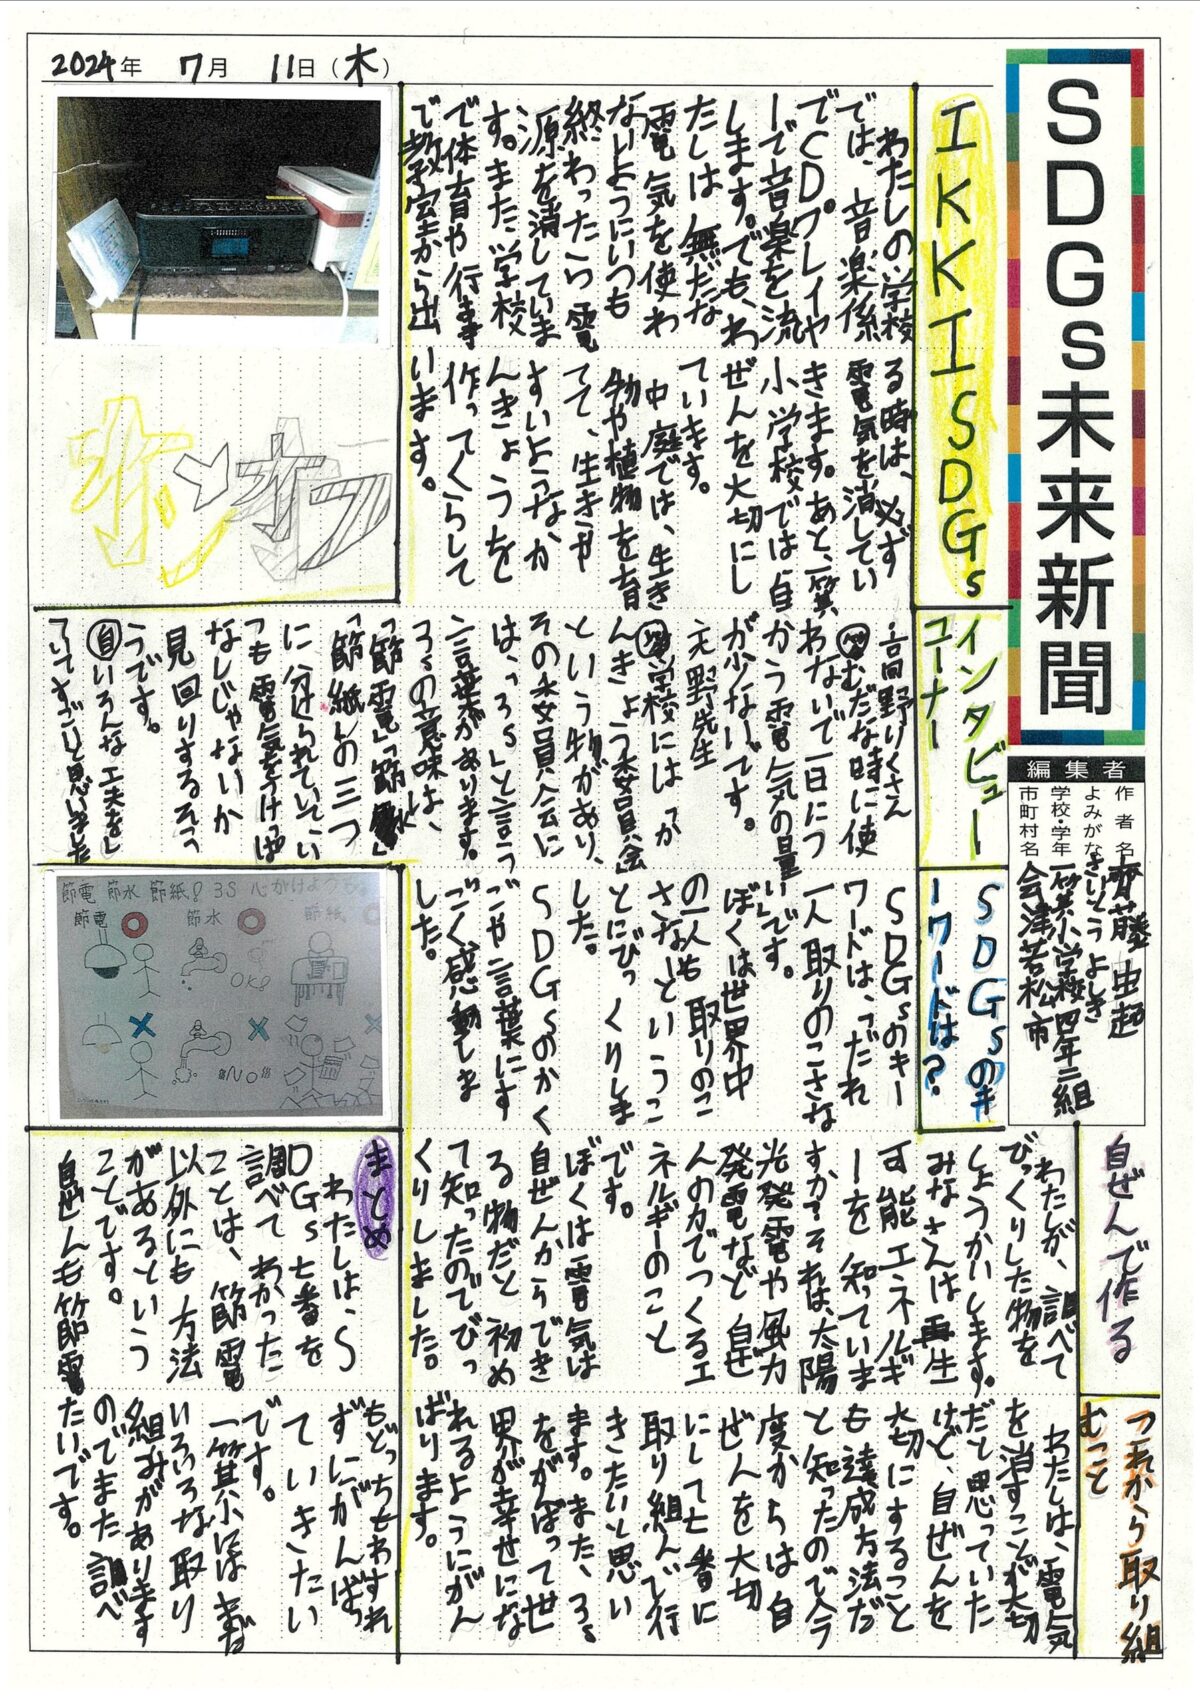 SDGs未来新聞
編集者
作者名 齊藤 由起
よみがな さいとう よしき
学校・学年 一箕小学校 四年二組
市町村名 会津若松市
2024年 7月 11日(木)
IKKISDGs
わたしの学校
では、音楽係
でCDプレイヤ
ーで音楽を流
します。でも、わ
たしは無だな
電気を使わ
ないようにいつも
終わったら電
源を消していま
す。また、学校
で体育や行事
で教室から出
る時は、必ず
電気を消してい
きます。あと、一箕
小学校では自
ぜんを大切にし
ています。
中庭では、生き
物や植物を育
てて、生きや
すいようなか
んきょうを
作ってくらして
います。
オン オフ
インタビュー
コーナー
・高野りくさん
むだな時に使
わないで一日につ
かう電気の量
が少ないです。
・天野先生
学校には「か
んきょう委員会」
という物があり、
その委員会に
は、「3s」と言う
言葉があります。
3sの意味は、
「節電」「節水」
「節紙」の三つ
に分けられていて、い
つも電気をつけっぱ
なしじゃないか
見回りするそ
うです。
自いろんな工夫をし
ていてすごいと思いました
SDGsのキ
ーワードは?
SDGsのキー
ワードは、「だれ
一人取りのこさな
い」です。
ぼくは世界中
の一人も取りのこ
さないというこ
とにびっくりしま
した。
SDGsのかく
ごや言葉にす
ごく感動しま
した。
節電 節水 節紙! 3S 心がけよう
節電 節水 節紙
OK!
NO!
自ぜんで作る
わたしが、調べて
びっくりした物を
しょうかいします。
みなさんは再生
可能エネルギ
ーを知っていま
すか?それは、太陽
光発電や風力
発電など自ぜ
んの力でつくるエ
ネルギーのこと
です。
ぼくは電気は
自ぜんからでき
る物だと初め
て知ったのでびっ
くりしました。
これから取り組
むこと
わたしは、電気
を消すことが大切
だと思っていた
けど、自ぜんを
大切にすること
も達成方法だ
と知ったので今
度からは自
ぜんを大切
にして七番に
取り組んで行
きたいと思い
ます。また、3s
をがんばって世
界が幸せにな
れるようにがん
ばります。
まとめ
わたしは、S
DGs七番を
調べてわかった
ことは、節電
以外にも方法
があるという
ことです。
自ぜんも節電
もどっちもわすれ
ずにがんばっ
ていきたい
です。
一箕小にはまだ
いろいろな取り
組みがあります
のでまた調べ
たいです。